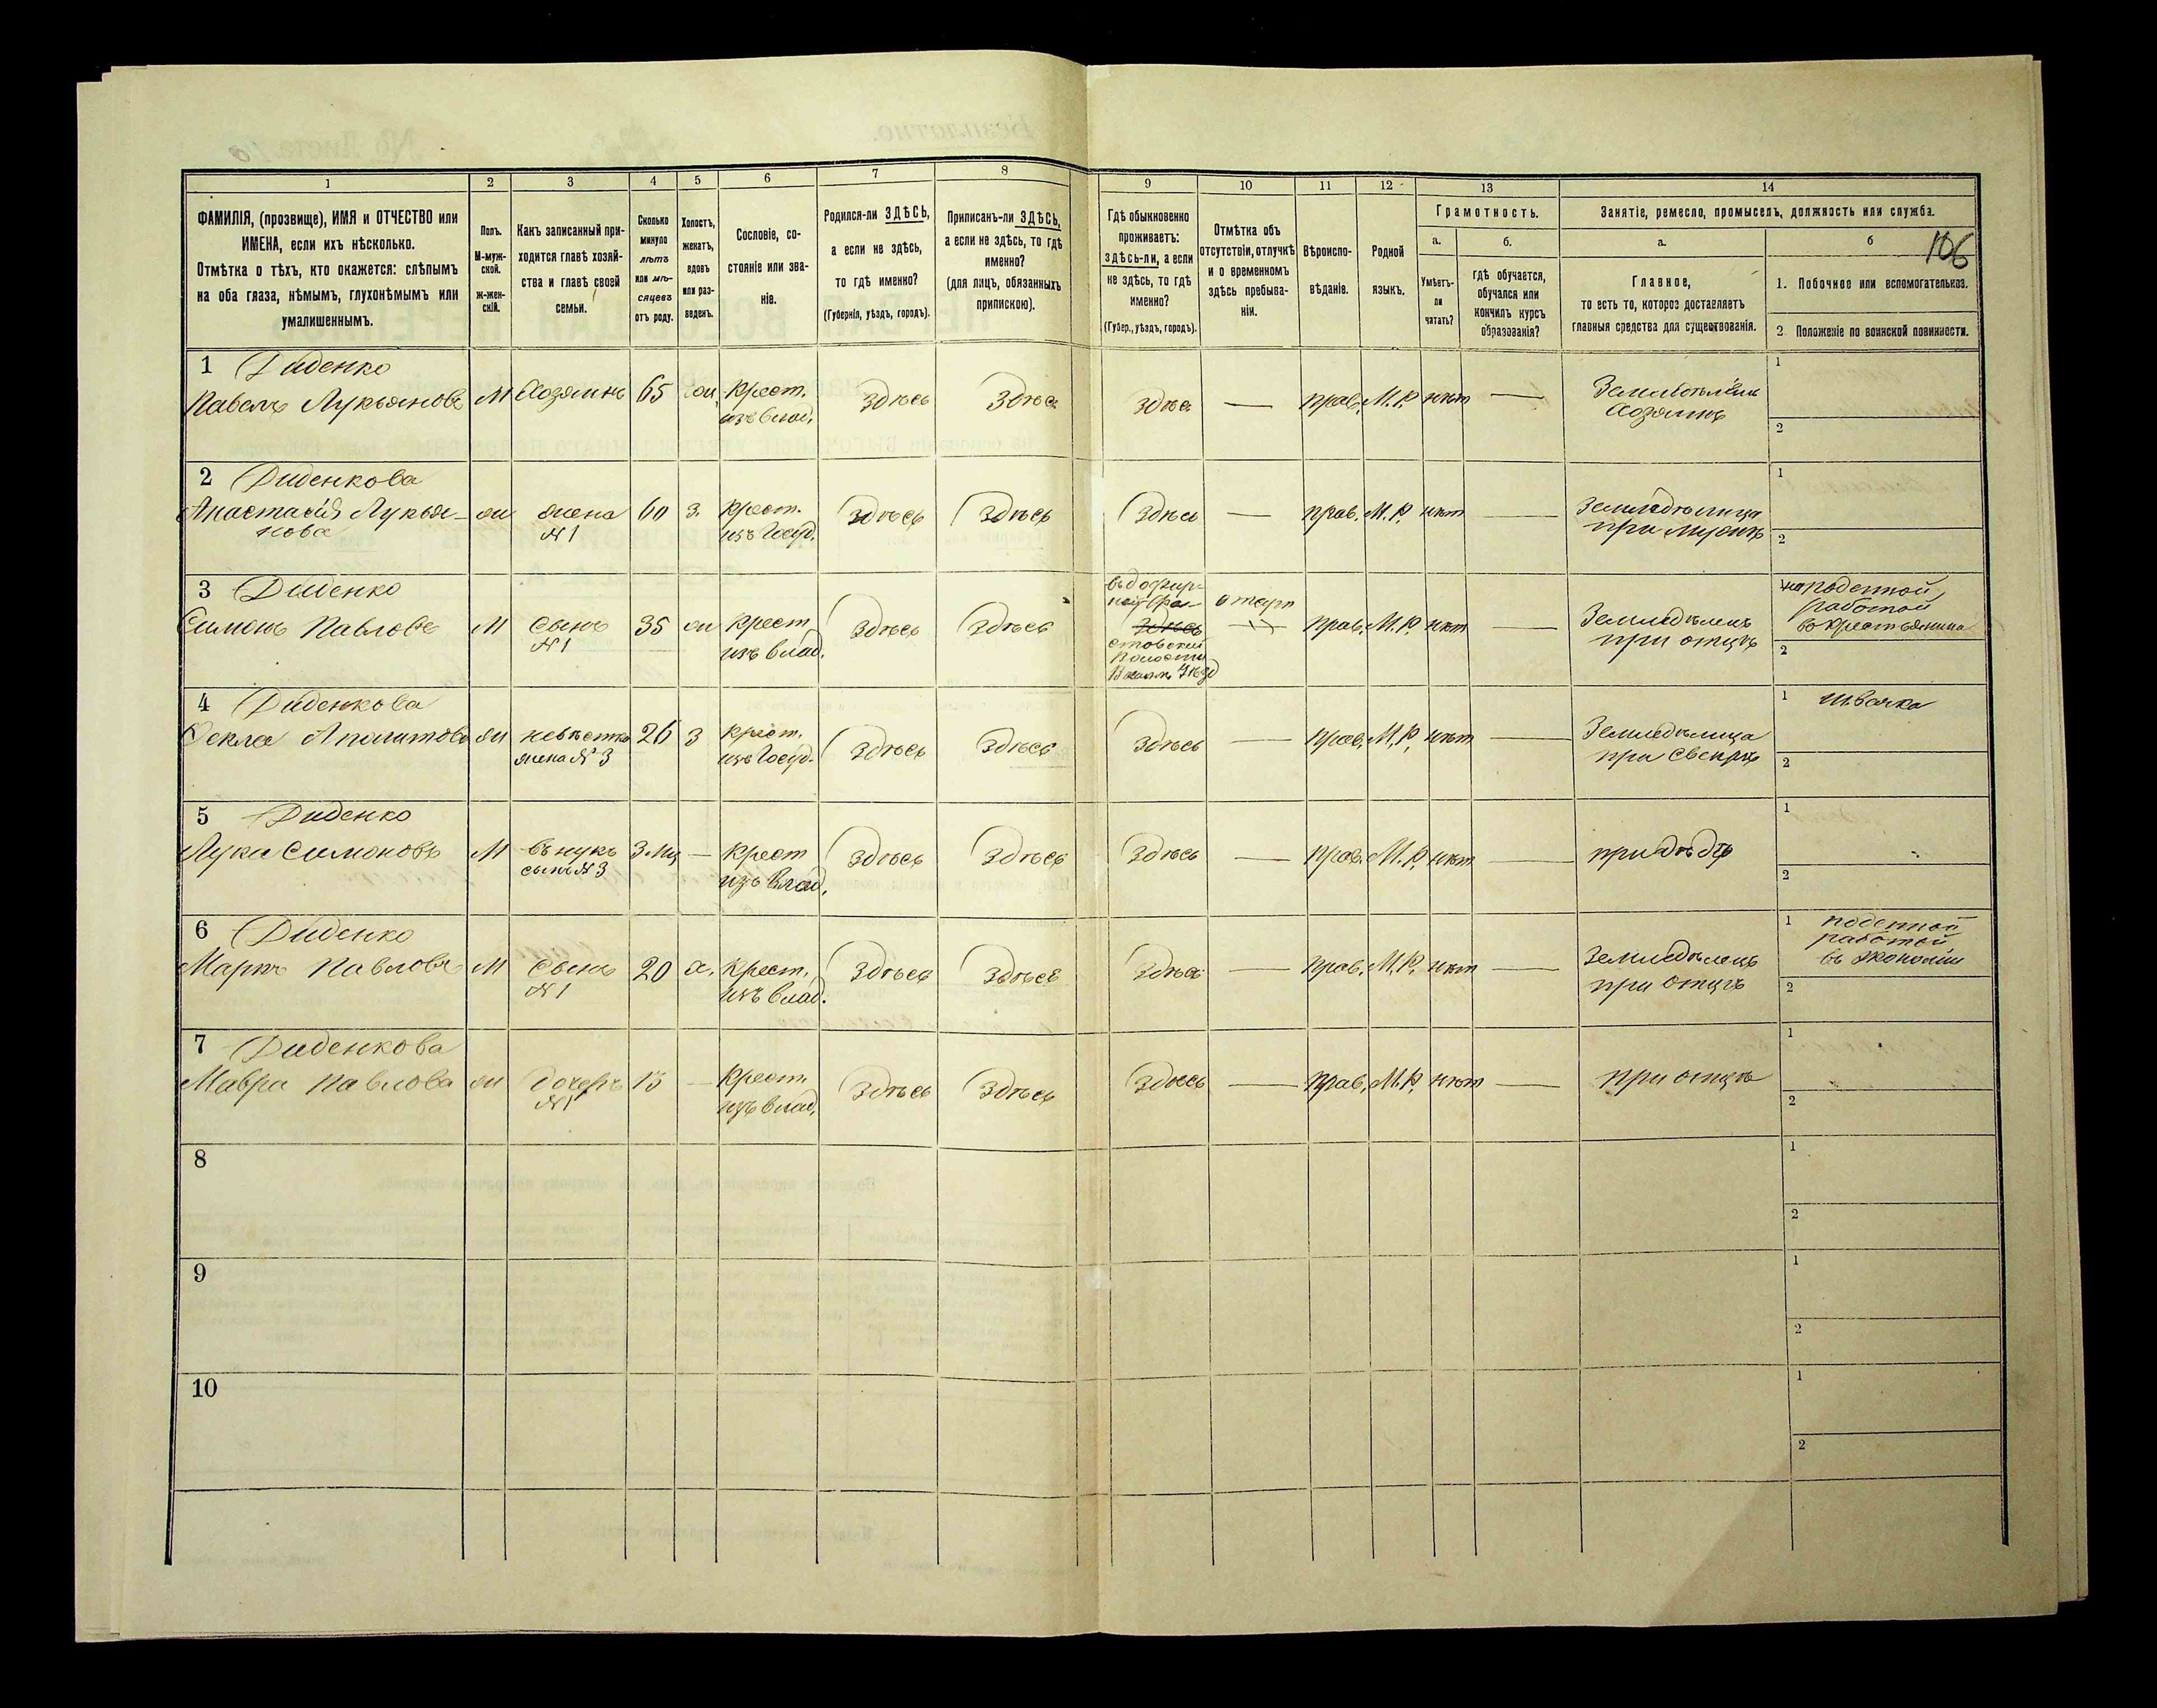 1 2 3 4 5 6 7 8 9 10 11 12 13 14
ФАМИЛІЯ, (прозвище), ИМЯ и ОТЧЕСТВО или
ИМЕНА, если ихъ нѣсколько.
Отмѣтка о тѣхъ, кто окажется: слѣпымъ
на оба глаза, нѣмымъ, глухонѣмымъ или
умалишеннымъ.
Полъ.
М-муж-
ской.
ж-жен-
скій.
Какъ записанный при-
ходится главѣ хозяй-
ства и главѣ своей
семьи.
Сколько
минуло
лѣтъ
или мѣ-
сяцевъ
отъ роду.
Холостъ,
женатъ,
вдовъ
или раз-
веденъ.
Сословіе, со-
стояніе или зва-
ніе.
Родился-ли ЗДѢСЬ,
а если не здѣсь,
то гдѣ именно?
(Губернія, уѣздъ, городъ).
Приписанъ-ли ЗДѢСЬ,
а если не здѣсь, то гдѣ
именно?
(для лицъ, обязанныхъ
припискою).
Гдѣ обыкновенно
проживаетъ:
здѣсь-ли, а если
не здѣсь, то гдѣ
именно?
(Губер., уѣздъ, городъ).
Отмѣтка объ
отсутствіи, отлучкѣ
и о временномъ
здѣсь пребыва-
ніи.
Вѣроиспо-
вѣданіе.
Родной
языкъ.
Грамотность.
а.
Умѣетъ-
ли
читать?
б.
гдѣ обучается,
обучался или
кончилъ курсъ
образованія?
Занятіе, ремесло, промыселъ, должность или служба.
а.
Главное,
то есть то, которое доставляетъ
главныя средства для существованія.
б
106
1. Побочное или вспомогательное.
2 Положеніе по воинской повинности.
1 Диденко
Павелъ Лукьяновъ М Хозяинъ 65 Крест. Здѣсь Здѣсь Здѣсь — прав. М.Р. нѣт — Хозяинъ
изъ влад.
1
2
2 Диденкова
Анастасія Лукья- ж жена 60 з. Крест. Здѣсь Здѣсь Здѣсь — прав. М.Р. нѣт — Земледѣлица
нова №1 изъ Госуд. при мужѣ
1
2
3 Диденко
Симонъ Павловъ М Сынъ 35 ж Крест. Здѣсь Здѣсь Здѣсь прав. М.Р. нѣт — Земледѣлецъ
№1 изъ влад. при отцѣ
волости
поденной
работой
2
4 Диденкова
Фекла ж невѣстка 26 З Крест. Здѣсь Здѣсь Здѣсь — прав. М.Р. нѣт — Земледѣлица
жена №3 изъ Госуд. при свекрѣ
1 швачка
2
5 Диденко
Лука Симоновъ М внукъ 3 мц — Крест Здѣсь Здѣсь Здѣсь — прав. М.Р. нѣт — при дѣдѣ
сынъ №3 изъ влад.
1
2
6 Диденко
Маркъ Павловъ М Сынъ 20 х. Крест. Здѣсь Здѣсь Здѣсь — прав. М.Р. нѣт — Земледѣлецъ
№1 изъ влад. при отцѣ
1 поденной
работой
въ экономіи
2
7 Диденкова
Мавра Павлова ж дочерь 13 — Крест. Здѣсь Здѣсь Здѣсь — прав. М.Р. нѣт — при отцѣ
№1 изъ влад.
1
2
8
1
2
9
1
2
10
1
2